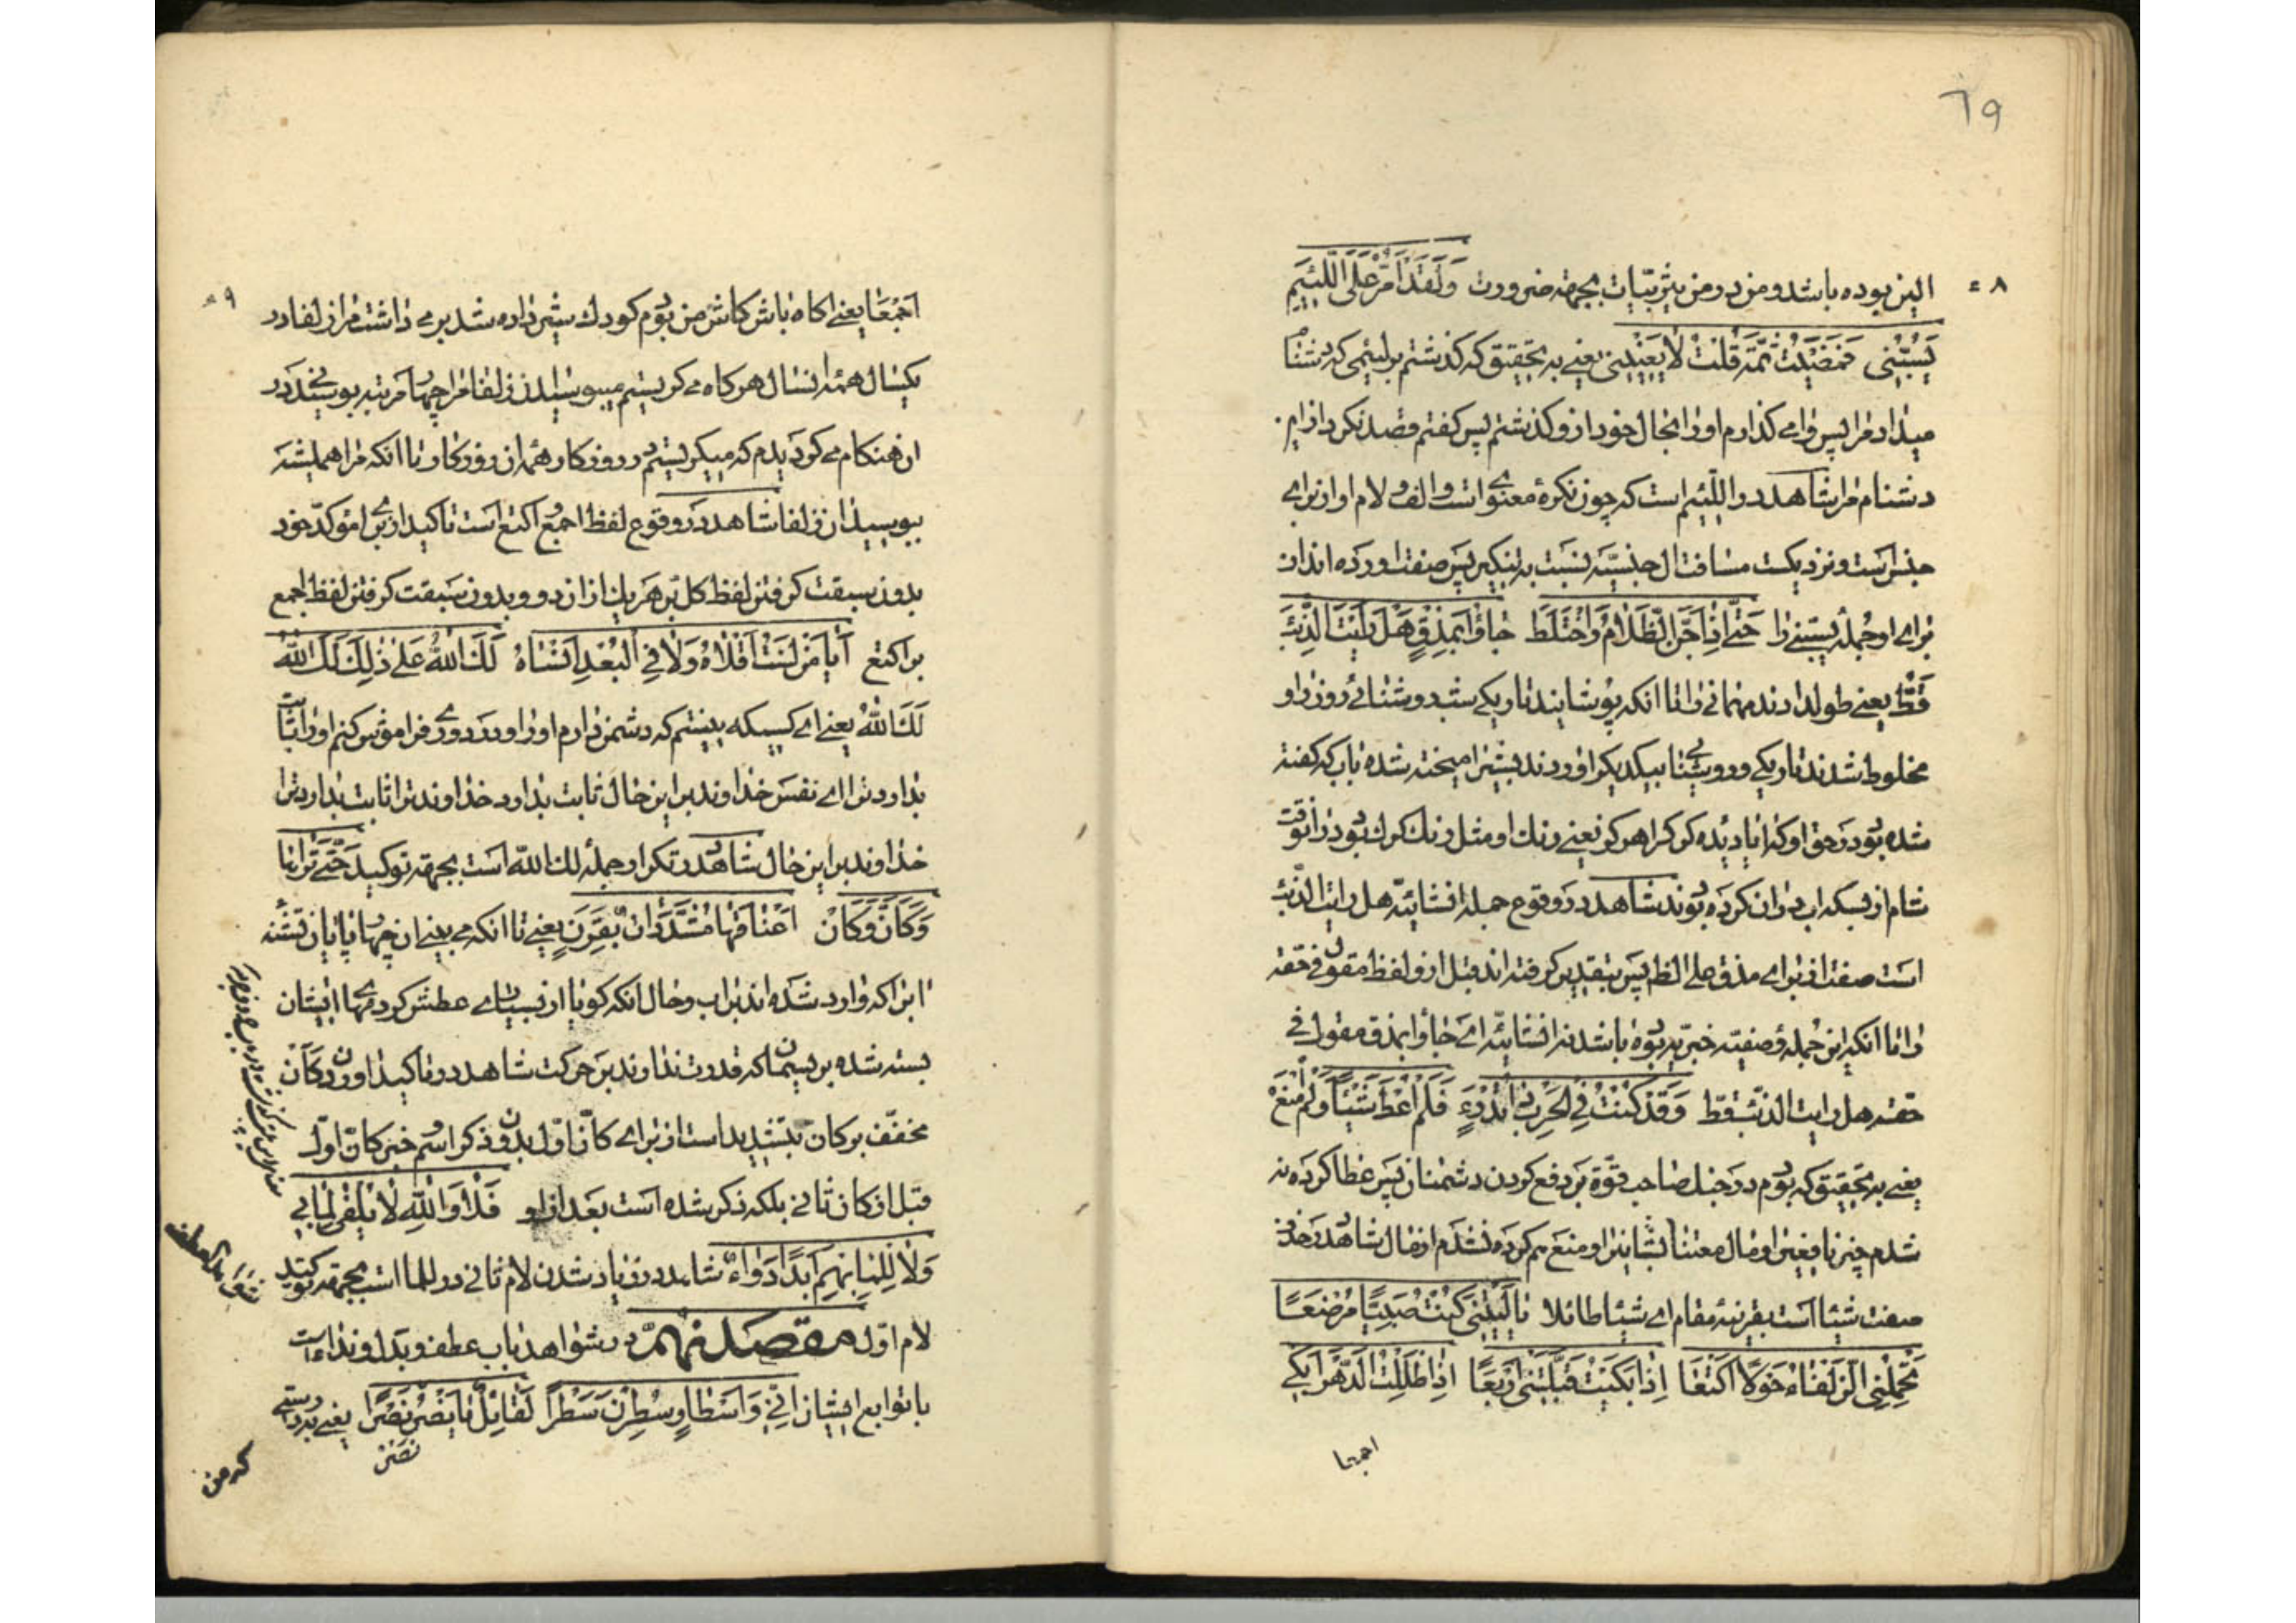 ٦٩
٨
الین بوده باشد و من در من یثربیات بجهة ضرورت وَلَقَد اَمُرُّ عَلَی اللَّئیمِ
یَسُبُّنی فَمَضَیتُ ثُمَّةَ قُلتُ لا یَعنینی یعنی به تحقیق که گذشتم بر لئیمی که دشنام
میداد مرا پس وامی گذارم او را بحال خود از و گذشتم پس گفتم قصد نکرد از این
دشنام مرا شاهد در اللئیم است که چون نکرهٔ معنوی است و الف و لام او از برای
جنس است و نزدیکست مسافت ال جنسیّه نسبت به تنکیر پس صفت آورده اند از
برای او جملهٔ یسبّنی را حَتّی اِذا جَنَّ الظَّلامُ وَاختَلَط جاؤا بِمَذقٍ هَل رَاَیتَ الذِّئبَ
قَطّ یعنی طول دادند مهمانی را تا انکه پوشانید تاریکی شب روشنائی روز را و
مخلوط شدند تاریکی و روشنائی بیکدیگر اوردند بشیر امیخته شده باب که گفته
شده بود در حق او که ایا دیده گرگ را هرگز یعنی رنک او مثل رنک گرک بود در انوقت
شام از بسکه اب در ان کرده بودند شاهد در وقوع جملهٔ انشائیّه هل رایت الذئب
است صفت از برای مذق علی الظاهر پس بتقدیر گرفته اند قبل از و لفظ مقول فی حقه
را تا انکه این جملهٔ وصفیّه خبریّه بوده باشد نه انشائیّه ای جاؤا بمذق مقول فی
حقه هل رایت الذئب قط وَقَد کُنتُ فِی الحَربِ ذا تُدرَءٍ فَلَم اُعطَ شَیئًا وَلَم اُمنَع
یعنی به تحقیق که بودم در جنک صاحب قوّة بر دفع کردن دشمنان پس عطا کرده نه
شدم چیز نافعی را و مال معتنا بشانی را و منع هم کرده نشدم از مال شاهد در حذف
صفت شیئا است بقرینهٔ مقام ای شیئا طائلا یا لَیتَنی کُنتُ صَبِیًّا مُرضَعًا
تَحمِلُنِی الذَّلفاءُ حَولاً اَکتَعًا اِذا بَکَیتُ قَبَّلَتنی اَربَعًا اِذًا ظَلِلتُ الدَّهرَ اَبکی
اجمعا
٩
اَجمَعًا یعنی اگاه باش کاش من بودم کودک شیر داده شد برمی داشت مرا زلفا در
یکسال همه انسال هرگاه می گریستم میبوسید زلفا مرا چهار مرتبه بوسیدنی در
ان هنگام می گردیدم که میگریستم در روزگار همه ان روزگار تا انکه مرا همیشه
ببوسید ان زلفا شاهد در وقوع لفظ اجمع و اکتع است تاکید از برای مؤکّد خود
بدون سبقت گرفتن لفظ کل بر هر یک از ان دو و بدون سبقت گرفتن لفظ اجمع
بر اکتع اَیا مَن لَستُ اَقلاهُ وَلا فِی البُعدِ اَنساهُ لَکَ اللهُ عَلی ذلِکَ لَکَ اللهُ
لَکَ اللهُ یعنی ای کسیکه نیستم که دشمن دارم او را و در دوری فراموش کنم او را ثابت
بدارد ترا ای نفس خداوند بر این حال ثابت بدارد خداوند ترا ثابت بدارد ترا
خداوند بر این حال شاهد در تکرار جملهٔ لک الله است بجهة توکید حَتّی تَراها
وَکَأَنَّ وَکَأَن اَعناقَها مُشَدَّداتٌ بِقَرَنٍ یعنی تا انکه می بینی ان چهار پایان تشنه
را که وارد شده اند بر اب و حال انکه گویا از بسیاری عطش گردنهای ایشان
بسته شده بریسمان که قدرت ندارند بر حرکت شاهد در تاکید اوردن کأن
مخفّف بر کان بتشدید است از برای کانّ اول بدون ذکر اسم و خبر کانّ اوّل
قبل از کان ثانی بلکه ذکر شده است بعد از او فَلا وَاللهِ لا یُلفی لِما بی
وَلا لِلِما بِهِم اَبَدًا دَواءٌ شاهد در زیاد شدن لام ثانی در للما است بجهة توکید
لام اوّل مقصد نهم در شواهد باب عطف و بدل و ندا است
با توابع ایشان اِنّی وَاَسطارٍ سُطِرنَ سَطرًا لَقائِلٌ یا نَصرُ نَصرٌ نَصرًا یعنی بدرستی
نصر
که من